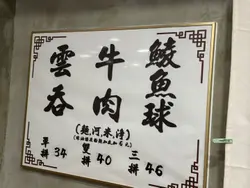 鯪魚球
牛肉
雲吞
(麵,河,米,淨)
單拼 34
雙拼 40
三拼 46